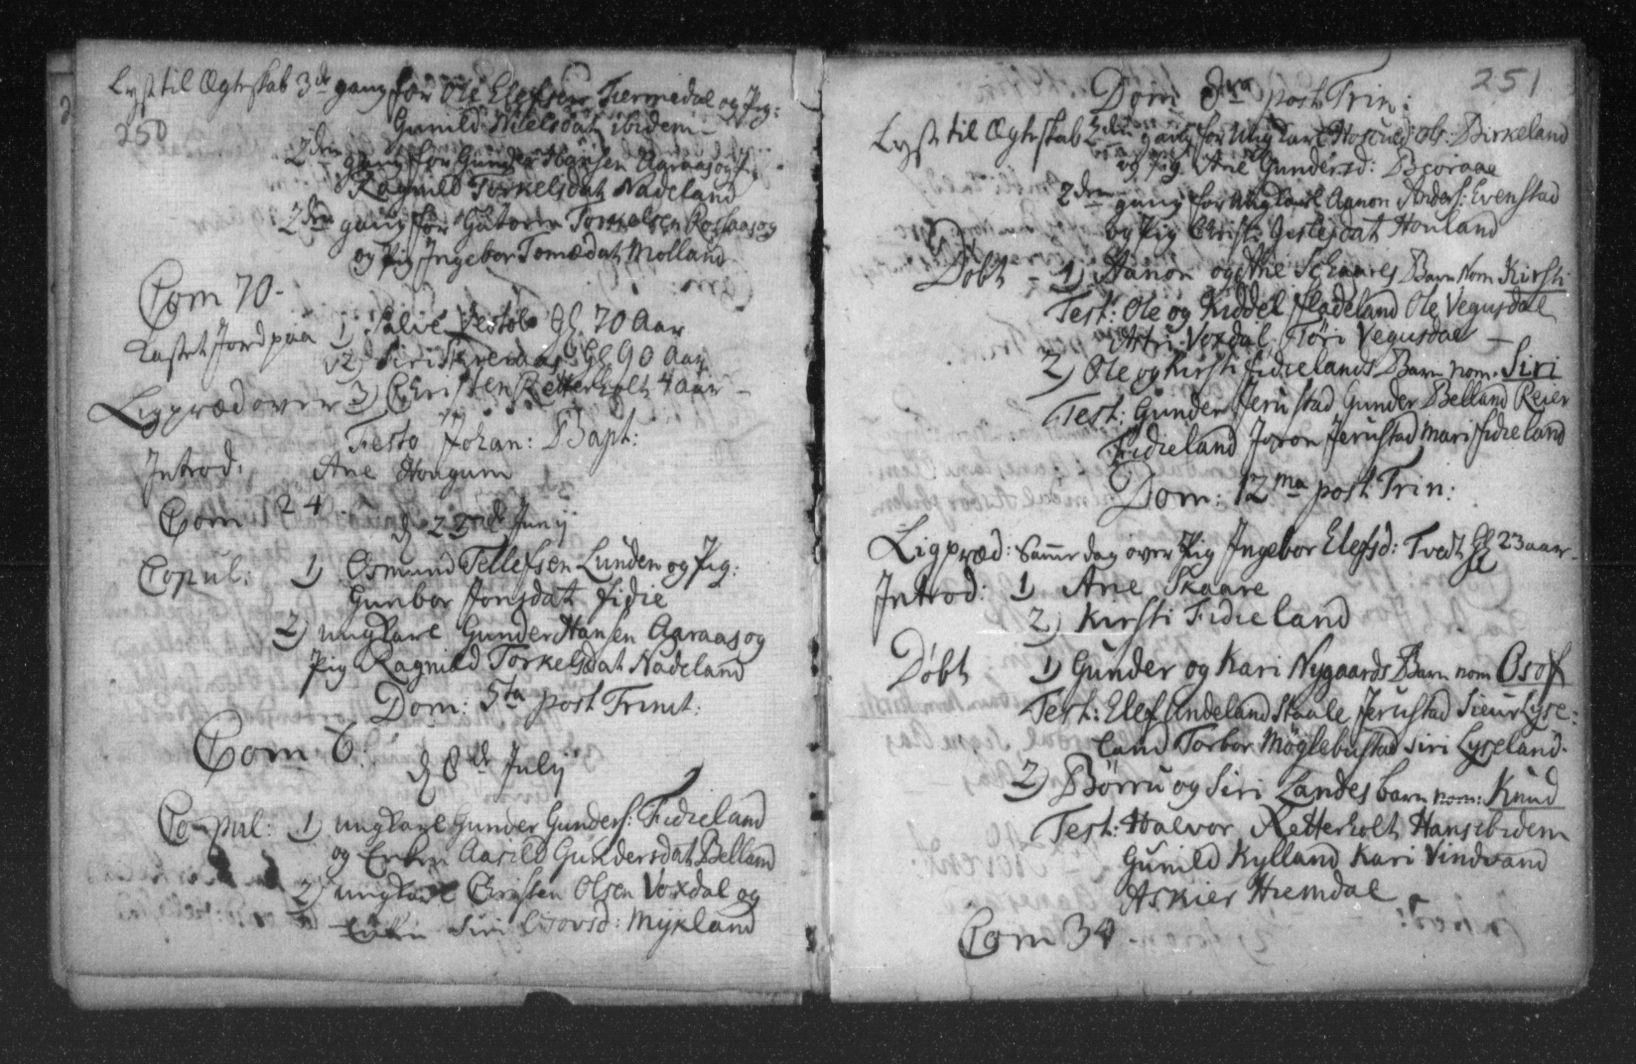 Lyst til Ægteskab 3de gang for Ole Elefsen Tiermedal og Pig:
250
Gunild Nielsdat ibidem
2den gang for Gunder Hansen Aaraas og P.
Ragnild Torkelsdat Nadeland
2den gang for Guttorm Torkelsen Rossaas og
og Pig Ingebor Tomædat Molland
Com 70.
Kastet Jord paa 1) Salve Vestøl Gl. 70 Aar
2) Siri Gl 90 Aar
Ligpræd over 3) Christen Retterholt 4 aar
Festo Johan: Bapt:
Introd: Ane Hougum
Com 24.
d 23de Junij
Copul: 1) Osmund Tellefsen Lunden og Pig:
Gunbor Jonsdat Fidie
2) ungkarl Gunder Hansen Aaraas og
Pig Ragnild Torkelsdat Nadeland
Dom: 5ta post Trinit:
Com 6:
d 8de Julij
Copul: 1) ungkarl Gunder Gunders: Fidieland
og Enken Aasild Gundersdat Belland
2) ungkarl Christen Olsen Voxdal og
Enken Siri Osovsd: Mykland
251
Dom 8va post Trin:
Lyst til Ægteskab 2den gang for Ungkarl Ols: Birkeland
og Pig Ane Gundersd: Beoraae
2den gang for Ungkarl Aanon Anders: Evenstad
og Pig Christi Gerlejsdat Houland
Døbt 1) Hanor og Ane Schaares Barn Nom Kirsti
Test: Ole og Kiddel Fladeland Ole Vegusdal
Astri Voxdal, Tøri Vegusdal
2) Ole og Kirsti Fidielands Barn nom. Siri
Test: Gunder Jerustad Gunder Belland Reier
Fidieland Joron Jerustad Mari Fidieland
Dom: 12ma post Trin:
Ligpræd: Samme dag over Pig Ingebor Elefsd: Tvedt Gl 23 aar
Introd: 1) Ane Skaare
2) Kirsti Fidieland
Døbt 1) Gunder og Kari Nygaards Barn nom Osof
Test: Elef Undeland Staale Jerustad Sieur Lyse:
land Torbor Møglebustad Siri Lyseland.
2) Børru og Siri Landes barn nom: Knud
Test: Halvor Retterholt Hans ibidem
Gunild Kylland Kari Vindvand
Askier Hiemdal
Com 34